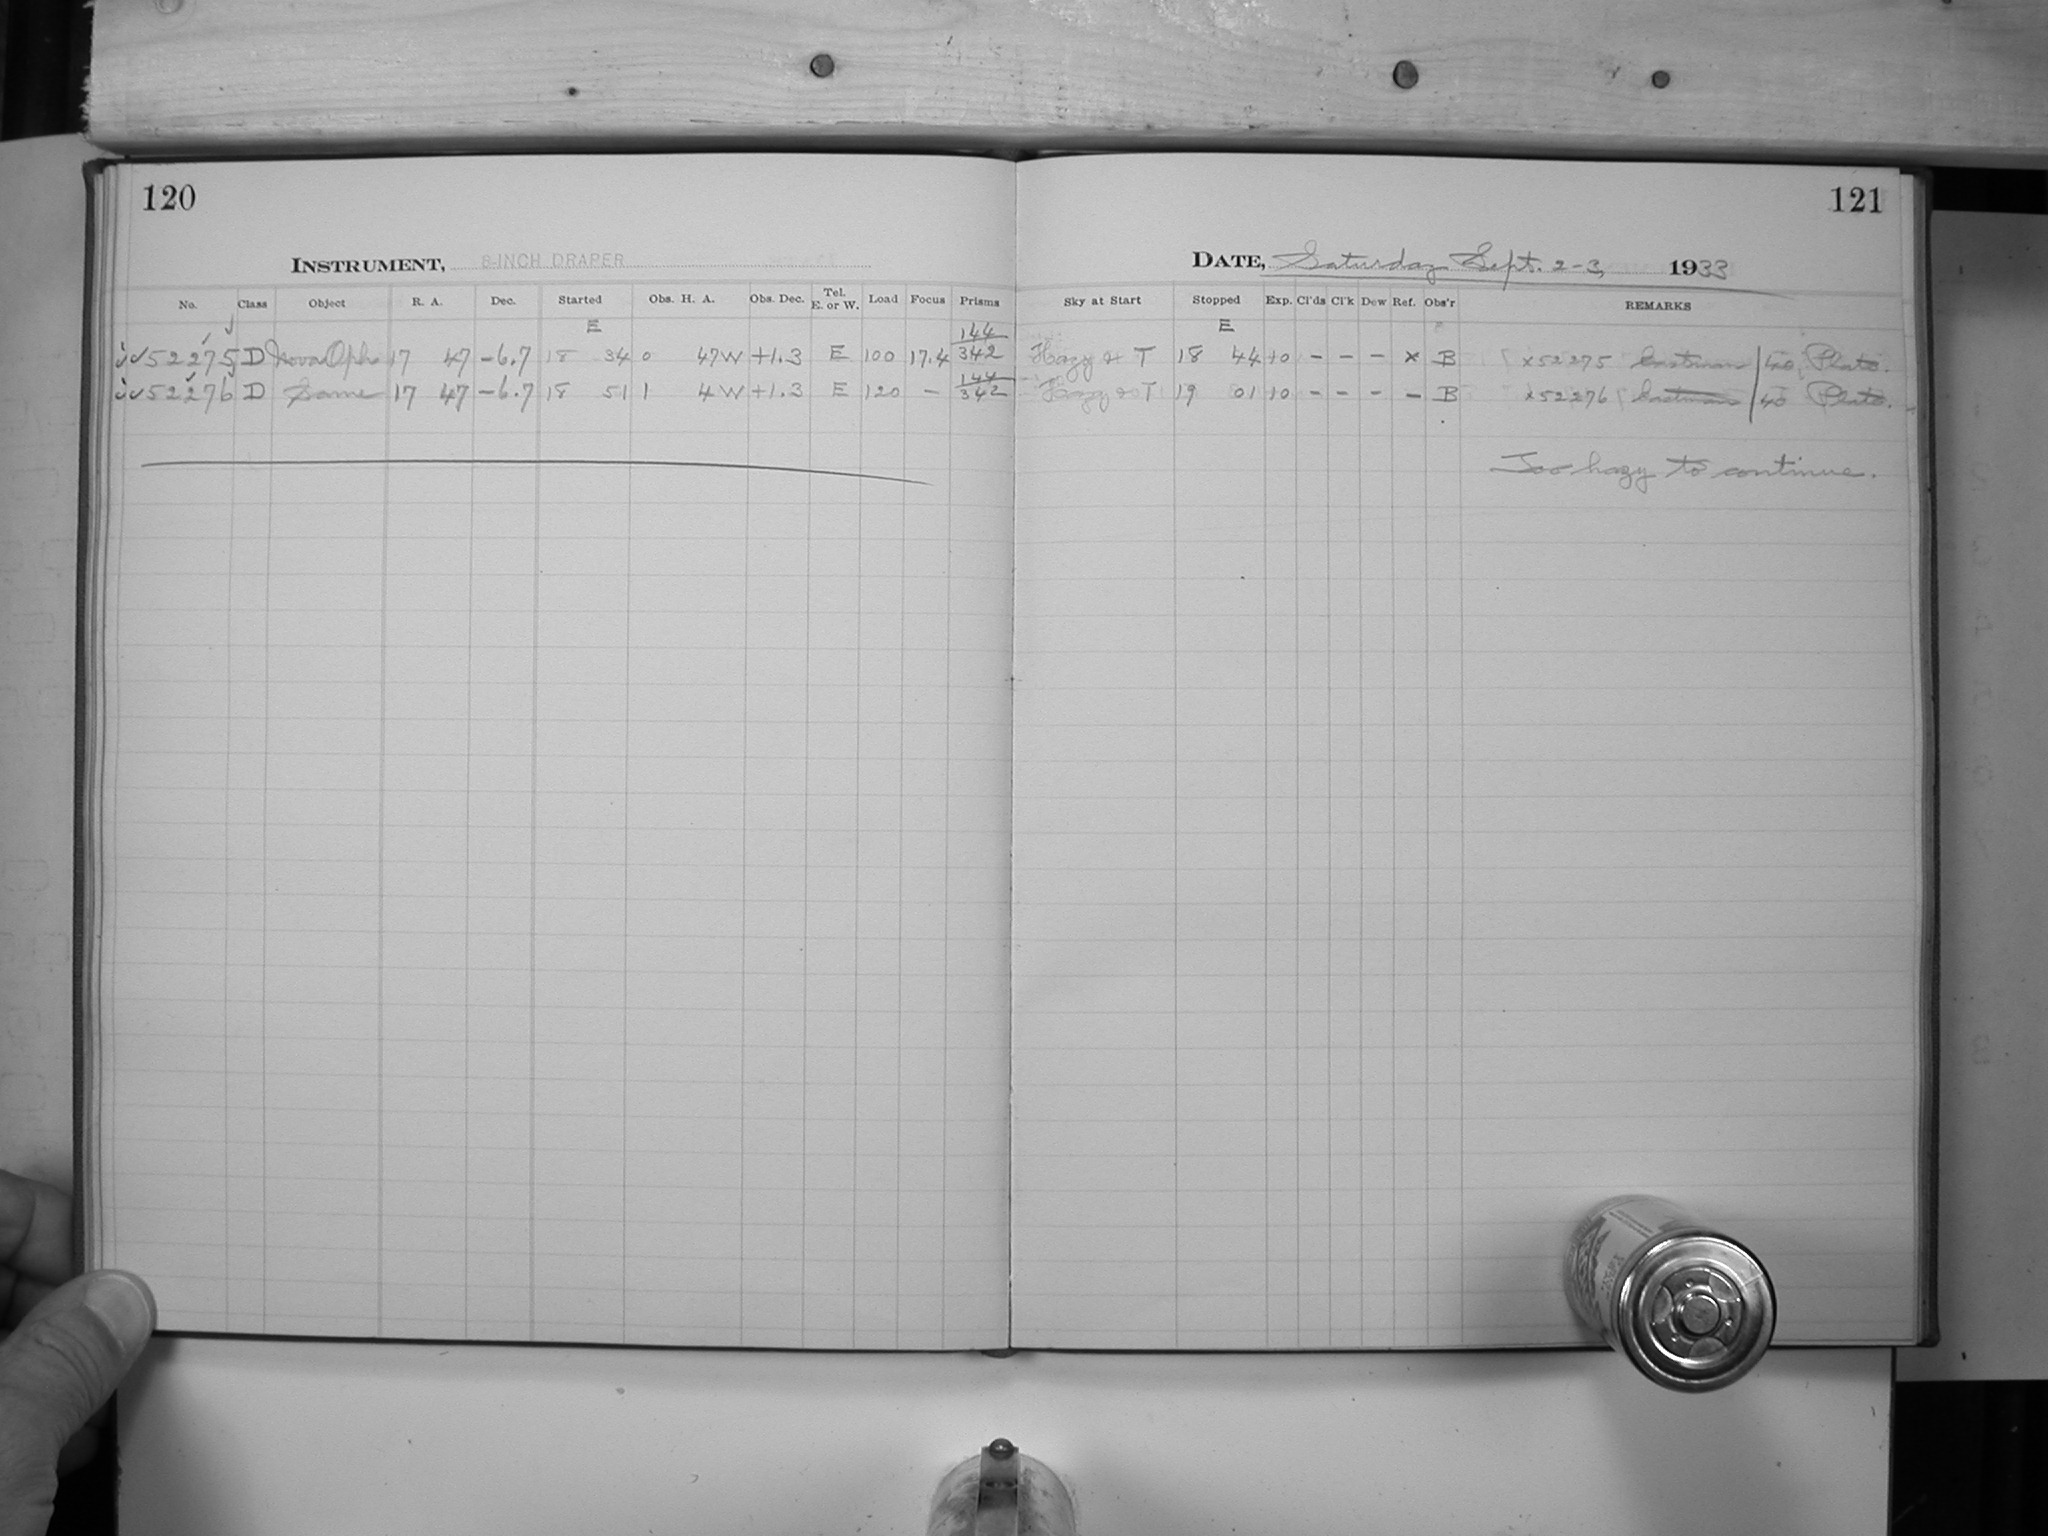 120
INSTRUMENT, 8-INCH DRAPER
No. Class Object R. A. Dec. Started Obs. H. A. Obs. Dec. Tel. E. or W. Load Focus Prisms
E 144
52275 D Nova Oph 17 47 -6.7 18 34 0 47 W +1.3 E 100 17.4 342
144
52276 D Same 17 47 -6.7 18 51 1 4 W +1.3 E 120 - 342
121
DATE, Saturday Sept. 2-3, 1933
Sky at Start Stopped Exp. Cl'ds Cl'k Dew Ref. Obs'r REMARKS
E
Hazy & T 18 44 10 - - - x B x52275 Eastman 40 Plate.
Hazy & T 19 01 10 - - - - B x52276 Eastman 40 Plate.
Too hazy to continue.